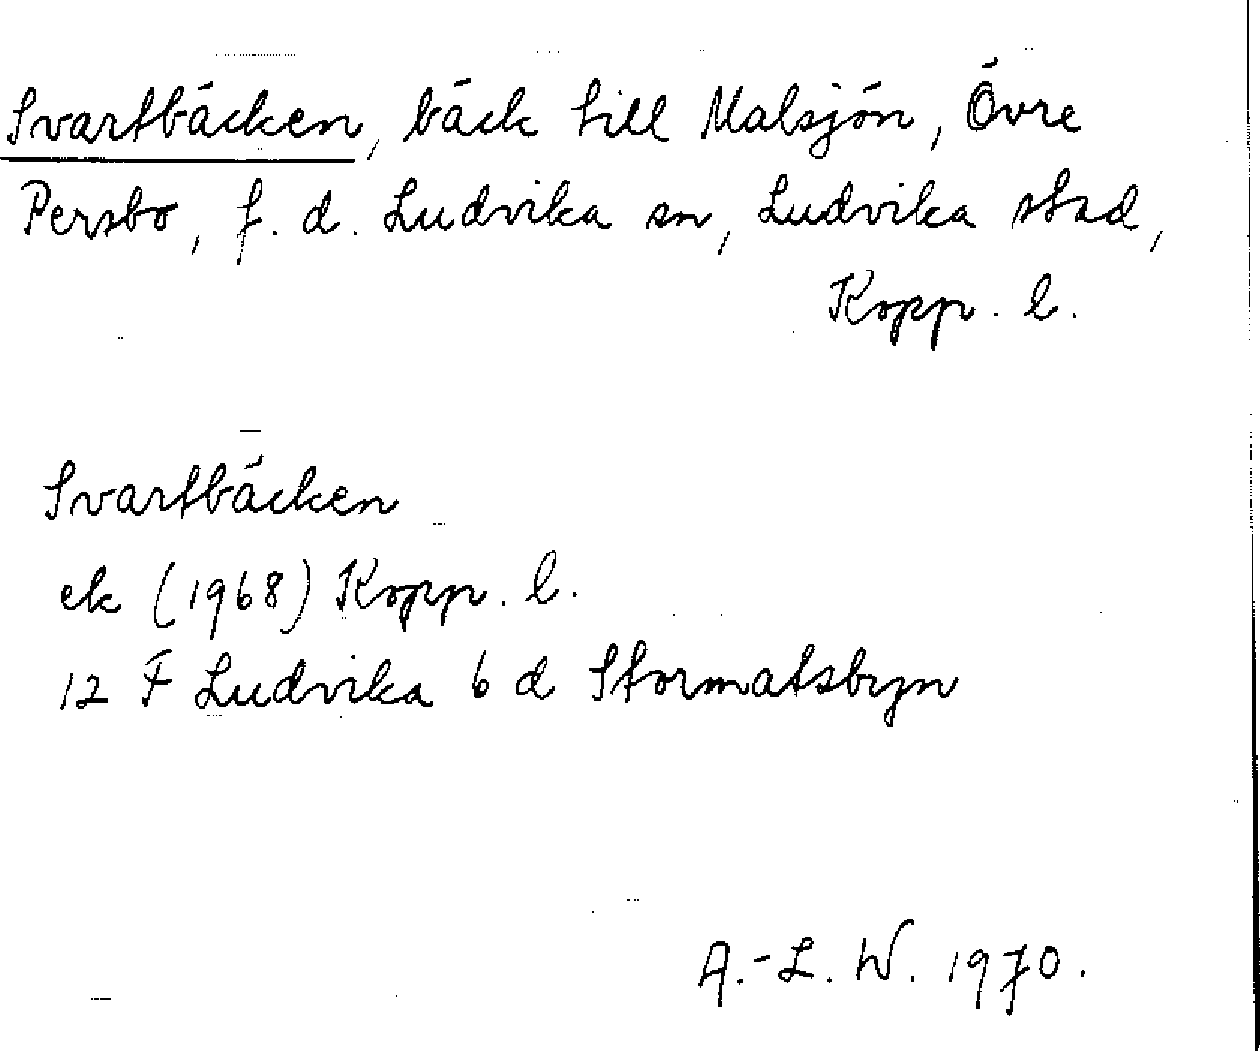 Svartbäcken, bäck till Malsjön, Övre
Persbo, f. d. Ludvika sn, Ludvika stad,
Kopp. l.
Svartbäcken
ek (1968) Kopp. l.
12 F Ludvika 6 d Stormatsbyn
A.-L. W. 1970.